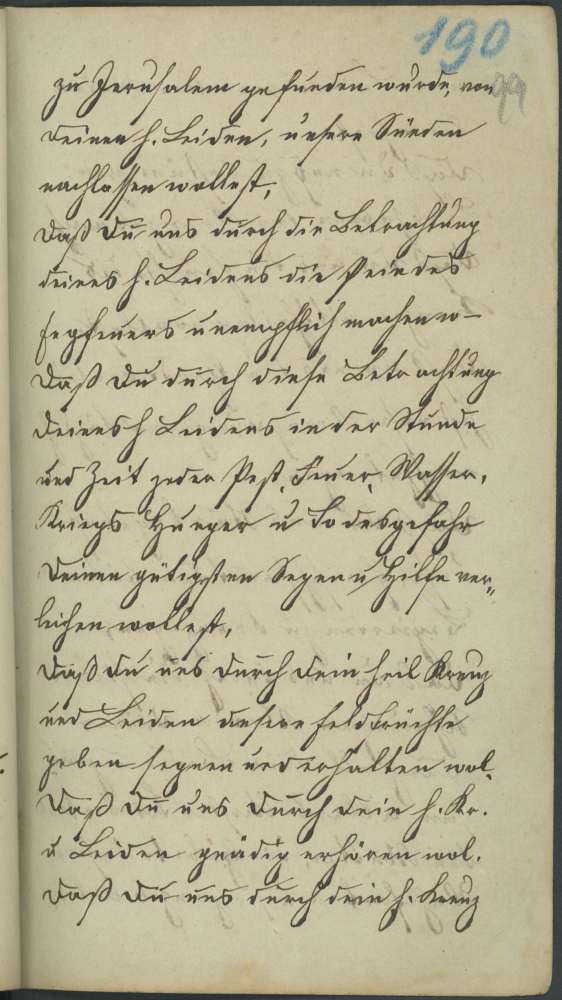 190
99
zu Jerusalem gefunden wurde, von
deinen h. Leiden, unsere Sünden
nachlassen wollest,
Daß Du uns durch die Betrachtung
deines h. Leidens die Pein des
Fegfeuers unempflich machen w–
Daß Du durch diese Betrachtung
deines h Leidens in der Stunde
und Zeit jeder Pest, Feuer, Wasser,
Kriegs Hunger u Todesgefahr
Deinen gütigsten Segen u Hilfe ver„
leihen wollest,
Daß du uns durch dein heil Kreuz
und Leiden unsere Feldfrüchte
geben segnen und erhalten wol.
Daß Du uns durch dein h. Kr.
u Leiden gnädig erhören wol.
Daß Du uns durch dein h. Kreuz